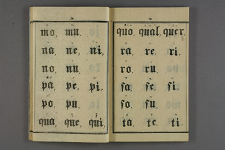 mo. mu.
na. ne. ni.
no. nu.
pa. pe. pi.
po. pu.
qua. que. qui.
quo. qual. quer.
ra. re. ri.
ro. ru.
sa. se. si.
so. su.
ta. te. ti.